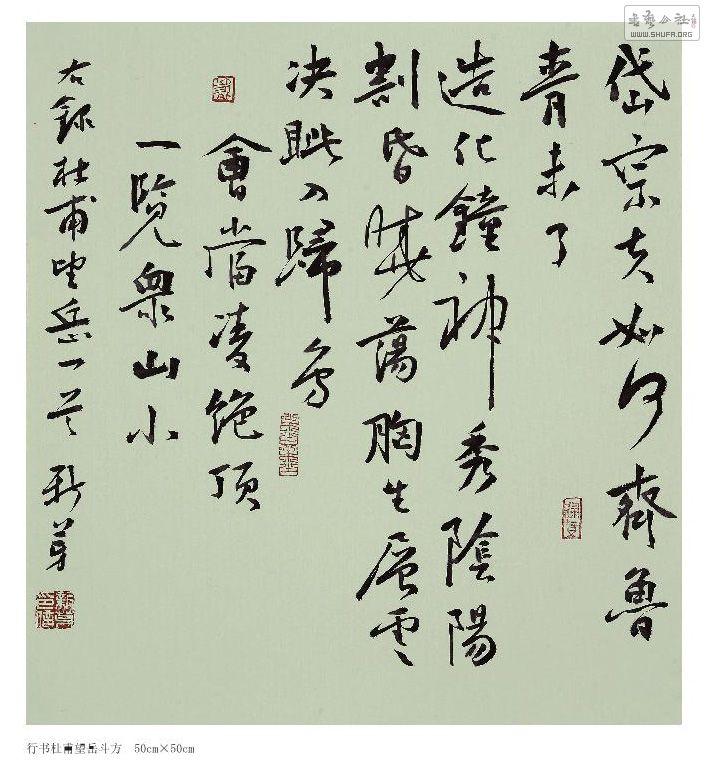 岱宗夫如何齊魯
青未了
造化鐘神秀陰陽
割昏曉蕩胸生層雲
決眥入歸鳥
會當凌絕頂
一覽衆山小
右録杜甫望岳一首
行书杜甫望岳斗方　50cm×50cm
WWW.SHUFA.ORG